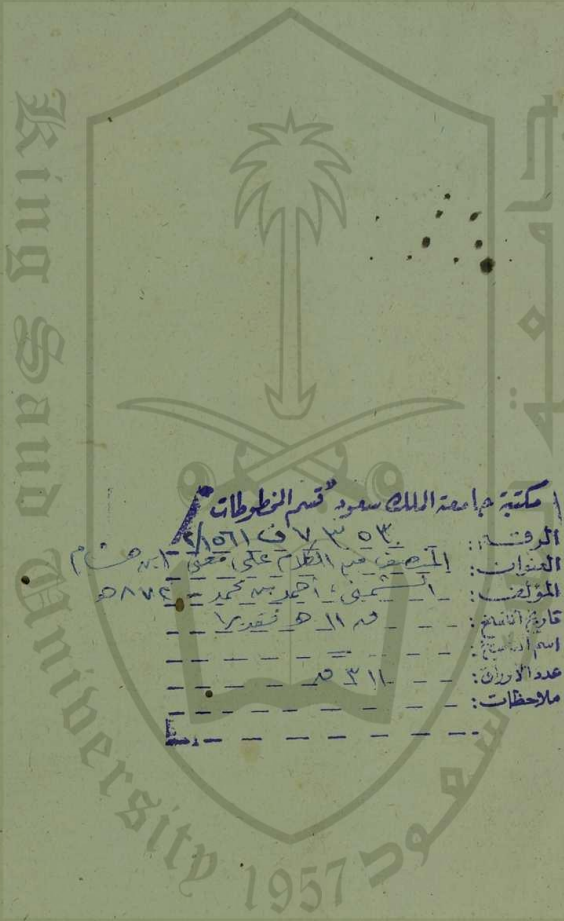 King Saud University 1957
مكتبة جامعة الملك سعود قسم المخطوطات
الرقم: ٥٣٠٣ ٧ ف ١٥٦١/٢
العنوان: المنصف من الكلام على مغني ابن هشام
المؤلف: الشمني، أحمد بن محمد - ٨٧٢ هـ
تاريخ النسخ: ق ١١ هـ تقديرا
اسم الناسخ:
عدد الأوراق: ٣١١ ق
ملاحظات: